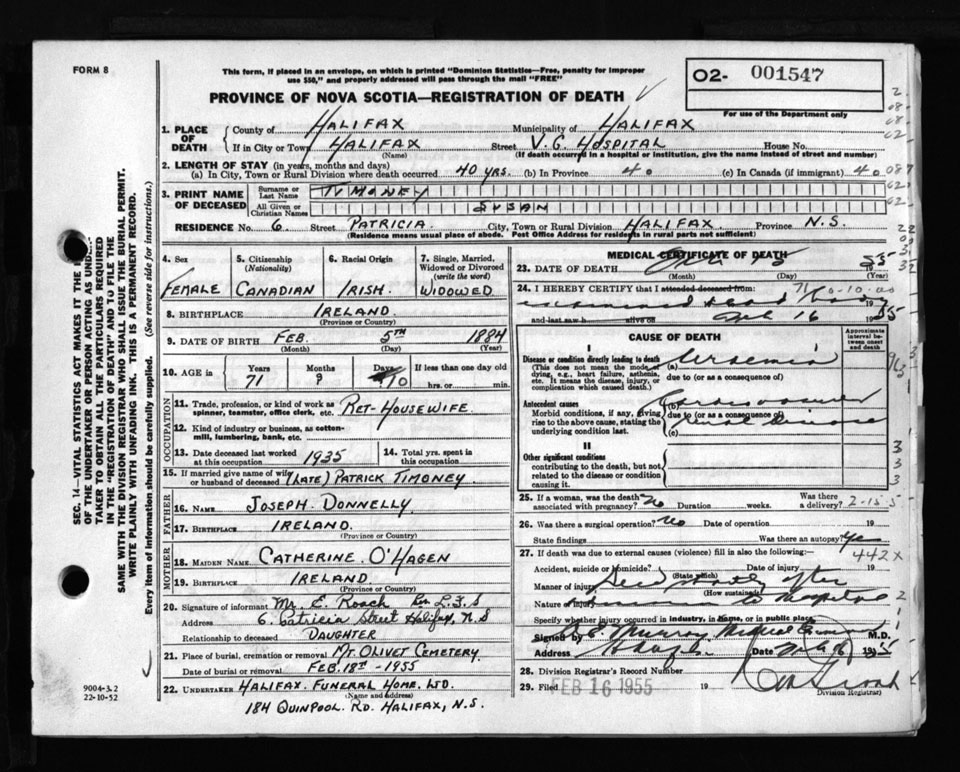 FORM 8
This form, if placed in an envelope, on which is printed "Dominion Statistics—Free, penalty for improper
use $50," and properly addressed will pass through the mail "FREE"
O2- 001547
For use of the Department only
PROVINCE OF NOVA SCOTIA—REGISTRATION OF DEATH
SEC. 14—VITAL STATISTICS ACT MAKES IT THE
OF THE UNDERTAKER OR PERSON ACTING AS UNDER-
TAKER TO OBTAIN ALL THE PARTICULARS REQUIRED
IN THE "REGISTRATION OF DEATH" AND TO FILE THE
SAME WITH THE DIVISION REGISTRAR WHO SHALL ISSUE THE BURIAL PERMIT.
WRITE PLAINLY WITH UNFADING INK. THIS IS A PERMANENT RECORD.
Every item of information should be carefully supplied. (See reverse side for instructions.)
1. PLACE OF DEATH County of HALIFAX Municipality of HALIFAX
If in City or Town HALIFAX Street V.G. HOSPITAL House No.
(Name) (If death occurred in a hospital or institution, give the name instead of street and number)
2. LENGTH OF STAY (in years, months and days)
(a) In City, Town or Rural Division where death occurred 40 YRS. (b) In Province 40 (c) In Canada (if immigrant) 40
3. PRINT NAME OF DECEASED Surname or Last Name TIMONEY
All Given or Christian Names SUSAN
RESIDENCE No. 6. Street PATRICIA City, Town or Rural Division HALIFAX. Province N.S.
(Residence means usual place of abode. Post Office Address for residents in rural parts not sufficient)
4. Sex FEMALE
5. Citizenship (Nationality) CANADIAN
6. Racial Origin IRISH.
7. Single, Married, Widowed or Divorced (write the word) WIDOWED
8. BIRTHPLACE IRELAND
(Province or Country)
9. DATE OF BIRTH FEB. 5TH 1884
(Month) (Day) (Year)
10. AGE in Years 71 Months Days 10 If less than one day
hrs. or min.
OCCUPATION
11. Trade, profession, or kind of work as spinner, teamster, office clerk, etc. RET-HOUSEWIFE.
12. Kind of industry or business, as cotton-mill, lumbering, bank, etc.
13. Date deceased last worked at this occupation 1935
14. Total yrs. spent in this occupation
15. If married give name of wife or husband of deceased (LATE) PATRICK TIMONEY.
FATHER
16. Name JOSEPH DONNELLY.
17. Birthplace IRELAND.
(Province or Country)
MOTHER
18. MAIDEN NAME CATHERINE O'HAGEN
19. BIRTHPLACE IRELAND
(Province or Country)
20. Signature of informant E. Roach
Address 6. Patricia Street Halifax, N.S
Relationship to deceased DAUGHTER
21. Place of burial, cremation or removal MT. OLIVET CEMETERY.
Date of burial or removal FEB. 18TH - 1955
22. UNDERTAKER HALIFAX. FUNERAL HOME. LTD.
(Name and address)
184 QUINPOOL. RD. HALIFAX, N.S.
9004-3.2
22-10-52
MEDICAL CERTIFICATE OF DEATH
23. DATE OF DEATH 55
(Month) (Day) (Year)
24. I HEREBY CERTIFY that I attended deceased from:
19
and last saw h alive on 16 1955
CAUSE OF DEATH
Approximate interval between onset and death
I
Disease or condition directly leading to death (a) Uraemia
(This does not mean the mode of dying, e.g., heart failure, asthenia, etc. It means the disease, injury, or complication which caused death.)
due to (or as a consequence of)
Antecedent causes (b) Cardiovascular
Morbid conditions, if any, giving rise to the above cause, stating the underlying condition last.
due to (or as a consequence of)
(c) renal Disease
II
Other significant conditions
contributing to the death, but not related to the disease or condition causing it.
25. If a woman, was the death associated with pregnancy? No Duration weeks. Was there a delivery?
26. Was there a surgical operation? No Date of operation 19
State findings Was there an autopsy? Yes
27. If death was due to external causes (violence) fill in also the following: 442X
Accident, suicide or homicide? Date of injury 19
(State which)
Manner of injury Died shortly after
(How sustained)
Nature of injury admission to Hospital
Specify whether injury occurred in industry, in home, or in public place
Signed by E. Murray Medical Examiner M.D.
Address Date 1955
28. Division Registrar's Record Number
29. Filed FEB 16 1955 19
Division Registrar)